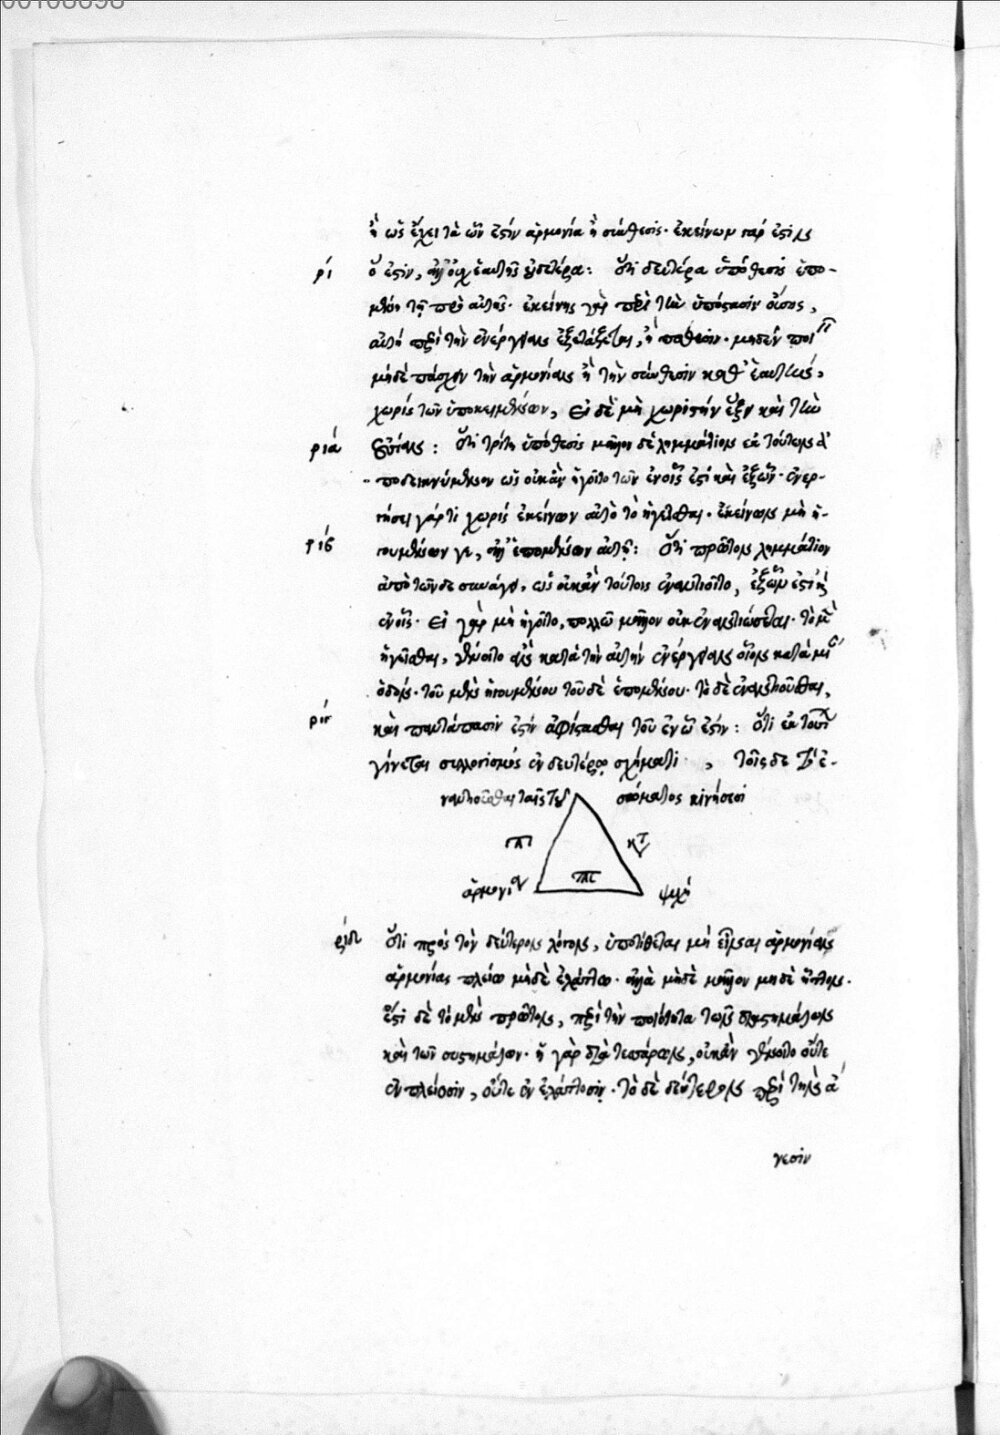 ἢ ὡς ἔχει τὰ ὧν ἐστὶν ἁρμονία ἢ σύνθεσις· ἐκείνων γάρ ἐστιν
ρι
ὅ ἐστιν, ἀλλ' οὐχ ἑαυτῆς οὐδετέρα: ὅτι δευτέρα ὑπόθεσις ἑπο-
μένη τῇ πρὸ αὐτῆς· ἐκείνης γὰρ περὶ τὴν ὑπόστασιν οὔσης,
αὕτη περὶ τὴν ἐνέργειαν ἐξετάζεται, ἢ πάθησιν· μηδὲν ποι
μηδὲ πάσχειν τὴν ἁρμονίαν ἢ τὴν σύνθεσιν καθ' ἑαυτήν,
χωρὶς τῶν ὑποκειμένων, εἰ δὲ μὴ χωριστὴν ἕξειν καὶ τὴν
ρια
οὐσίαν: ὅτι τρίτη ὑπόθεσις μᾶλλον δὲ λημμάτιον ἐκ τούτων ἀ
ποδεικνύμενον ὡς οὐκ ἂν ἡγοῖτο τῶν ἐν οἷς ἐστὶ καὶ ἐξ ὧν· ἐνερ-
γήσει γάρ τι χωρὶς ἐκείνων αὐτὸ τὸ ἡγεῖσθαι· ἐκείνων μὴ ἡ-
ριβ
γουμένων γε, ἀλλ' ἑπομένων αὐτῇ: ὅτι πρῶτον λημμάτιον
ἀπὸ τῶνδε συνάγει, ὡς οὐκ ἂν τούτοις ἐναντιοῖτο, ἐξ ὧν ἐστὶ καὶ
ἐν οἷς· εἰ γὰρ μὴ ἡγοῖτο, πολλῷ μᾶλλον οὐκ ἐναντιώσεται· τὸ μὲν
ἡγεῖσθαι, γένοιτο ἂν κατὰ τὴν αὐτὴν ἐνέργειαν οἷον κατὰ μίαν
ὁδόν· τοῦ μὲν ἡγουμένου τοῦ δὲ ἑπομένου· τὸ δὲ ἐναντιοῦσθαι,
ριγ
καὶ παντάπασιν ἐστὶν ἀφίστασθαι τοῦ ἐν ᾧ ἐστίν: ὅτι ἐκ τούτων
γίνεται συλλογισμὸς ἐν δευτέρῳ σχήματι , τοῖς δε
ναντιοῦσθαι ταῖς τοῦ σώματος κινήσεσι
ἁρμονία ψυχή
ριδ
ὅτι πρὸς τὸν δεύτερον λόγον, ὑποτίθεται μὴ εἶναι ἁρμονίαν
ἁρμονίας πλείω μηδὲ ἐλάττω· ἀλλὰ μηδὲ μᾶλλον μηδὲ ἧττον·
ἔστι δὲ τὸ μὲν πρῶτον, περὶ τὴν ποιότητα τῶν διαστημάτων
καὶ τῶν συστημάτων· ἡ γὰρ διὰ τεσσάρων, οὐκ ἂν γένοιτο οὔτε
ἐν πλείοσιν, οὔτε ἐν ἐλάττοσιν· τὸ δὲ δεύτερον περὶ τὴν ἄ
νεσιν